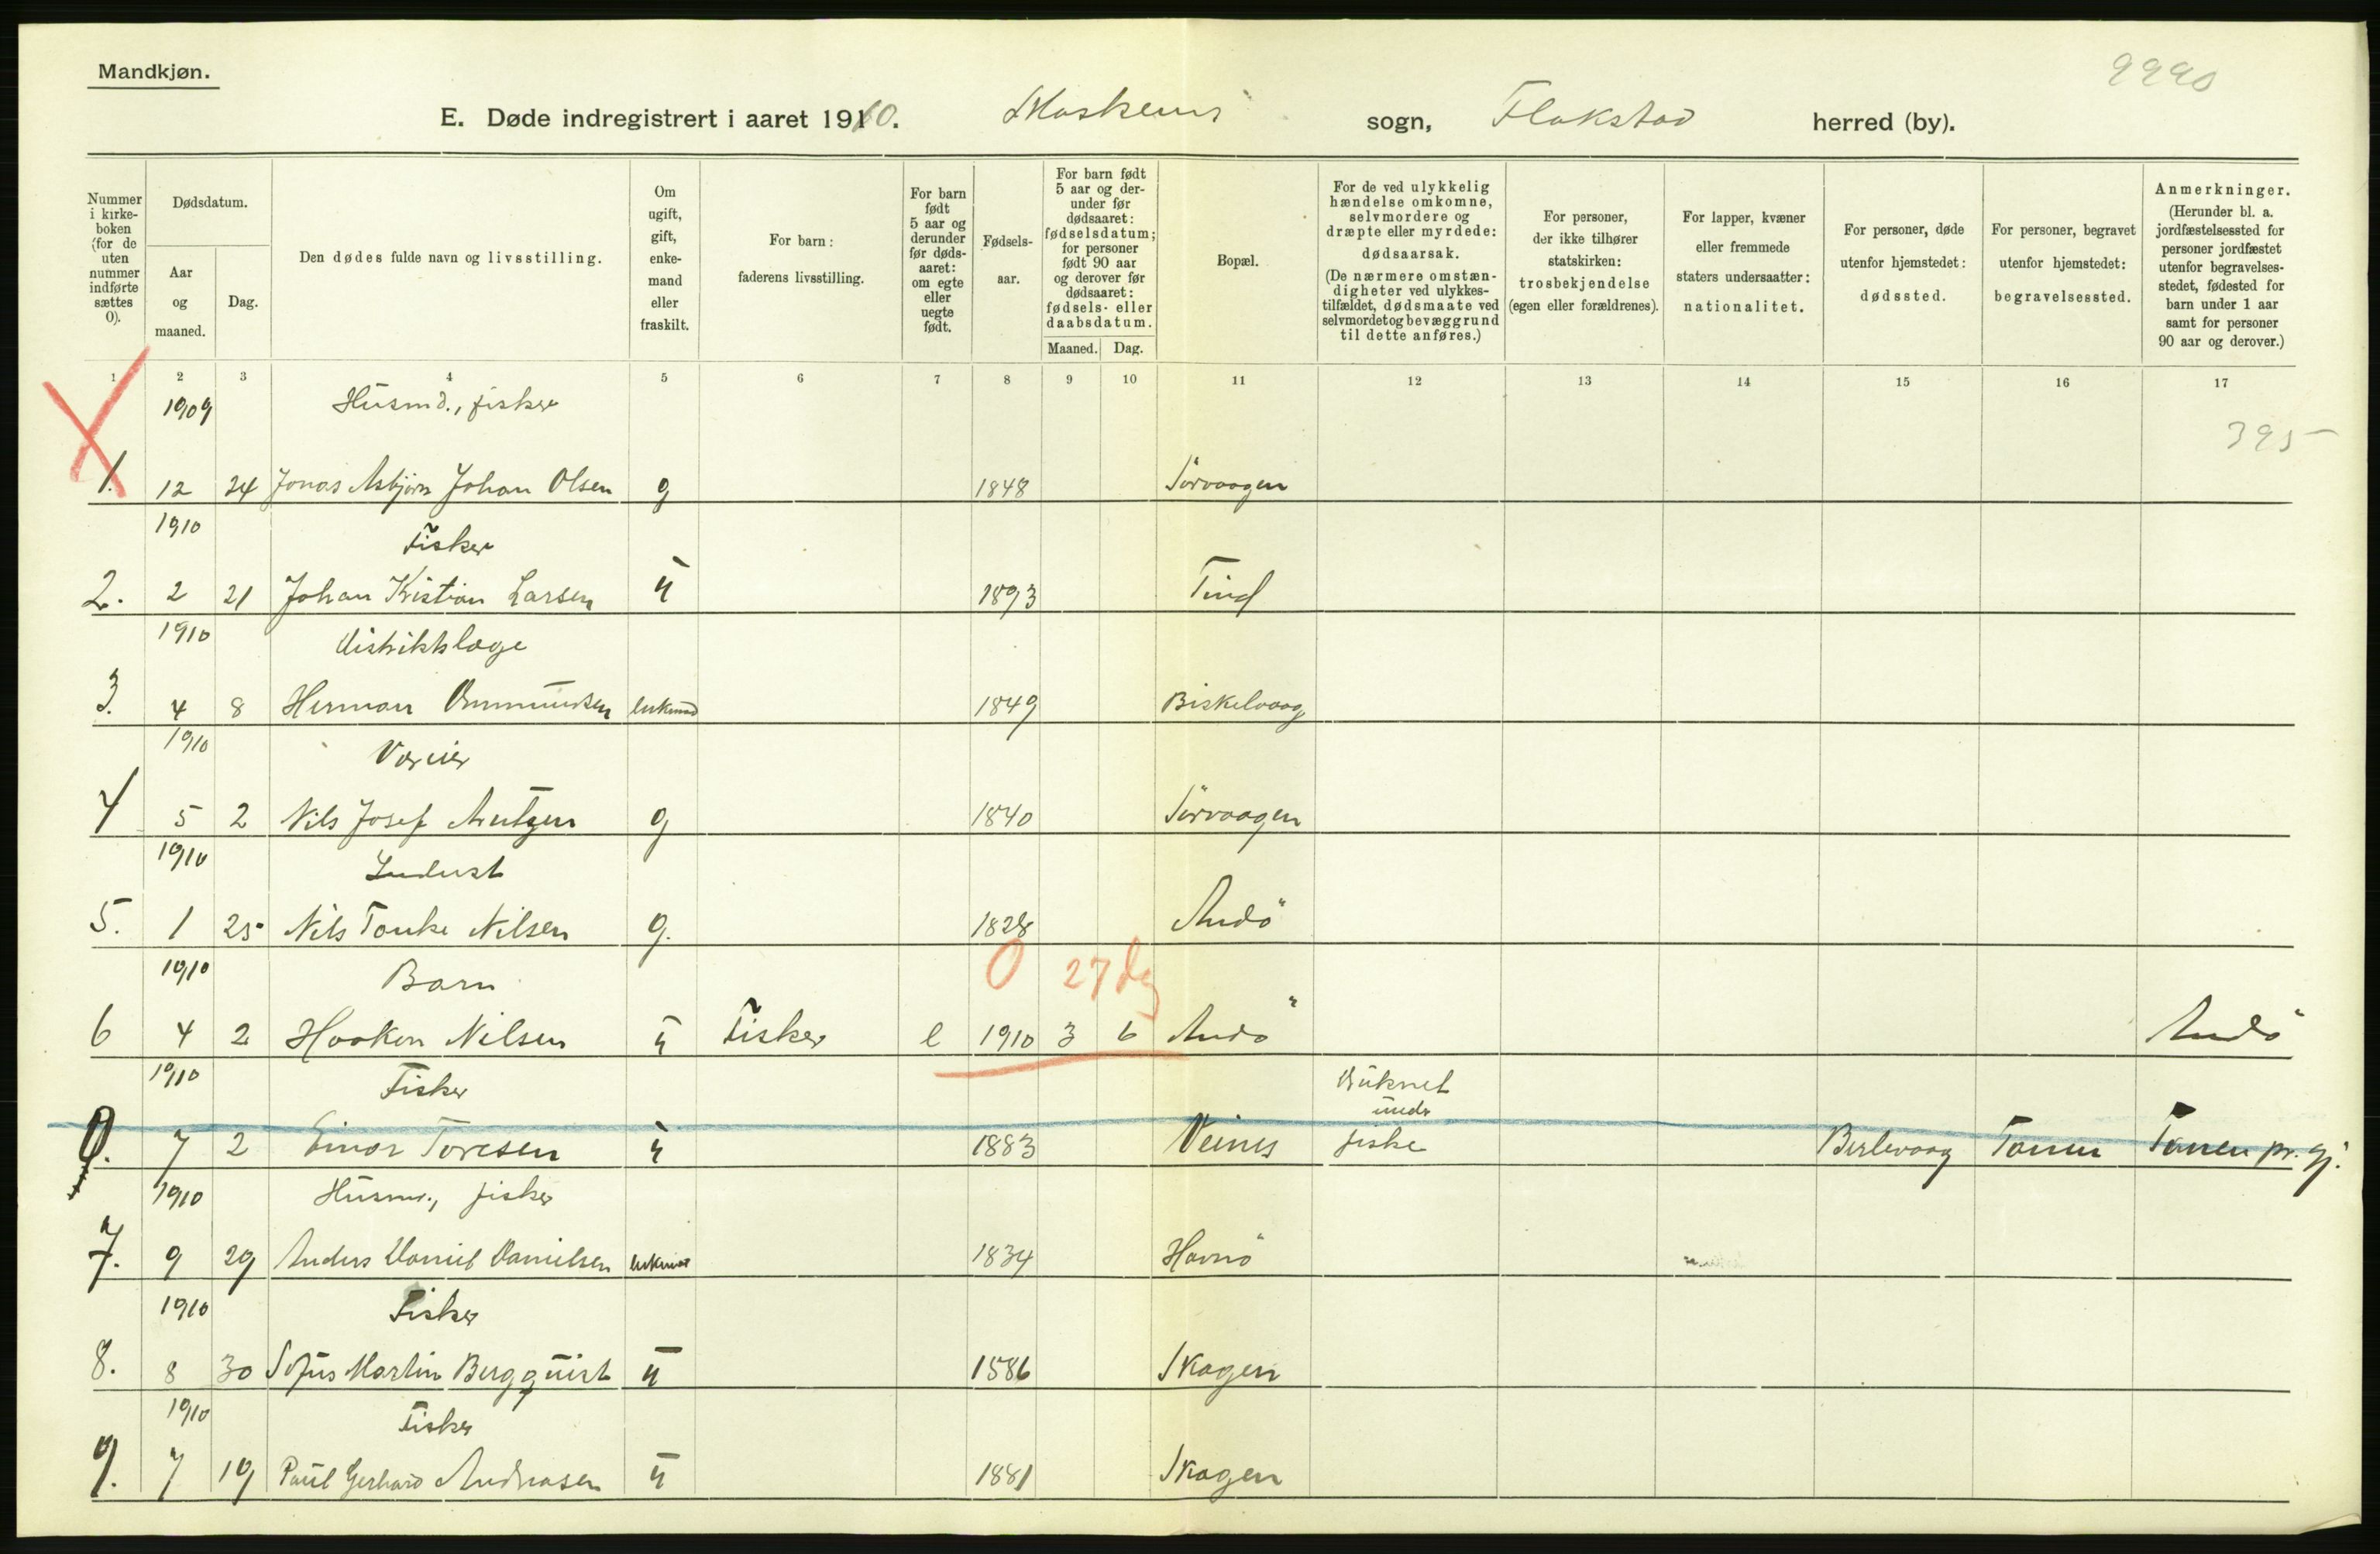 Mandkjøn.
9990
E. Døde indregistrert i aaret 1910. Moskenes sogn, Flakstad herred (by).
Nummer i kirke-boken (for de uten nummer indførte sættes 0).
Dødsdatum.
Aar og maaned.
Dag.
Den dødes fulde navn og livsstilling.
Om ugift, gift, enke-mand eller fraskilt.
For barn: faderens livsstilling.
For barn født 5 aar og derunder før døds-aaret: om egte eller uegte født.
Fødsels-aar.
For barn født 5 aar og der-under før dødsaaret: fødselsdatum; for personer født 90 aar og derover før dødsaaret: fødsels- eller daabsdatum.
Maaned. Dag.
Bopæl.
For de ved ulykkelig hændelse omkomne, selvmordere og dræpte eller myrdede: dødsaarsak. (De nærmere omstæn-digheter ved ulykkes-tilfældet, dødsmaate ved selvmordet og bevæggrund til dette anføres.)
For personer, der ikke tilhører statskirken: trosbekjendelse (egen eller forældrenes).
For lapper, kvæner eller fremmede staters undersaatter: nationalitet.
For personer, døde utenfor hjemstedet: dødssted.
For personer, begravet utenfor hjemstedet: begravelsessted.
Anmerkninger. (Herunder bl. a. jordfæstelsessted for personer jordfæstet utenfor begravelses-stedet, fødested for barn under 1 aar samt for personer 90 aar og derover.)
1 2 3 4 5 6 7 8 9 10 11 12 13 14 15 16 17
1909 Husmd., fisker
395
1. 12 24 Jonas Asbjørn Johan Olsen g 1848 Sörvaagen
1910 Fisker
2. 2 21 Johan Kristian Larsen u 1893 Tind
1910 Distriktslæge
3. 4 8 Herman Ommundsen enkmd 1849 Biskelvaag
1910 Væreier
4 5 2 Nils Josef Arntzen g 1840 Sörvaagen
1910 Inderst
5. 1 25 Nils Tonke Nilsen g. 1828 Andö
1910 Barn 0 27 dg
6 4 2 Haakon Nilsen u Fisker e 1910 3 6 Andö Andö
1910 Fisker Druknet under
0. 7 2 Einar Toresen u 1883 Veines fiske Berlevaag Tanen Tanen pr. gj.
1910 Husm., fisker
7. 9 29 Anders Daniel Danielsen enkmd 1834 Havnö
1910 Fisker
8. 8 30 Sofus Martin Bergquist u 1886 Skagen
1910 Fisker
9. 7 19 Paul Gerhard Andreasen u 1881 Skagen